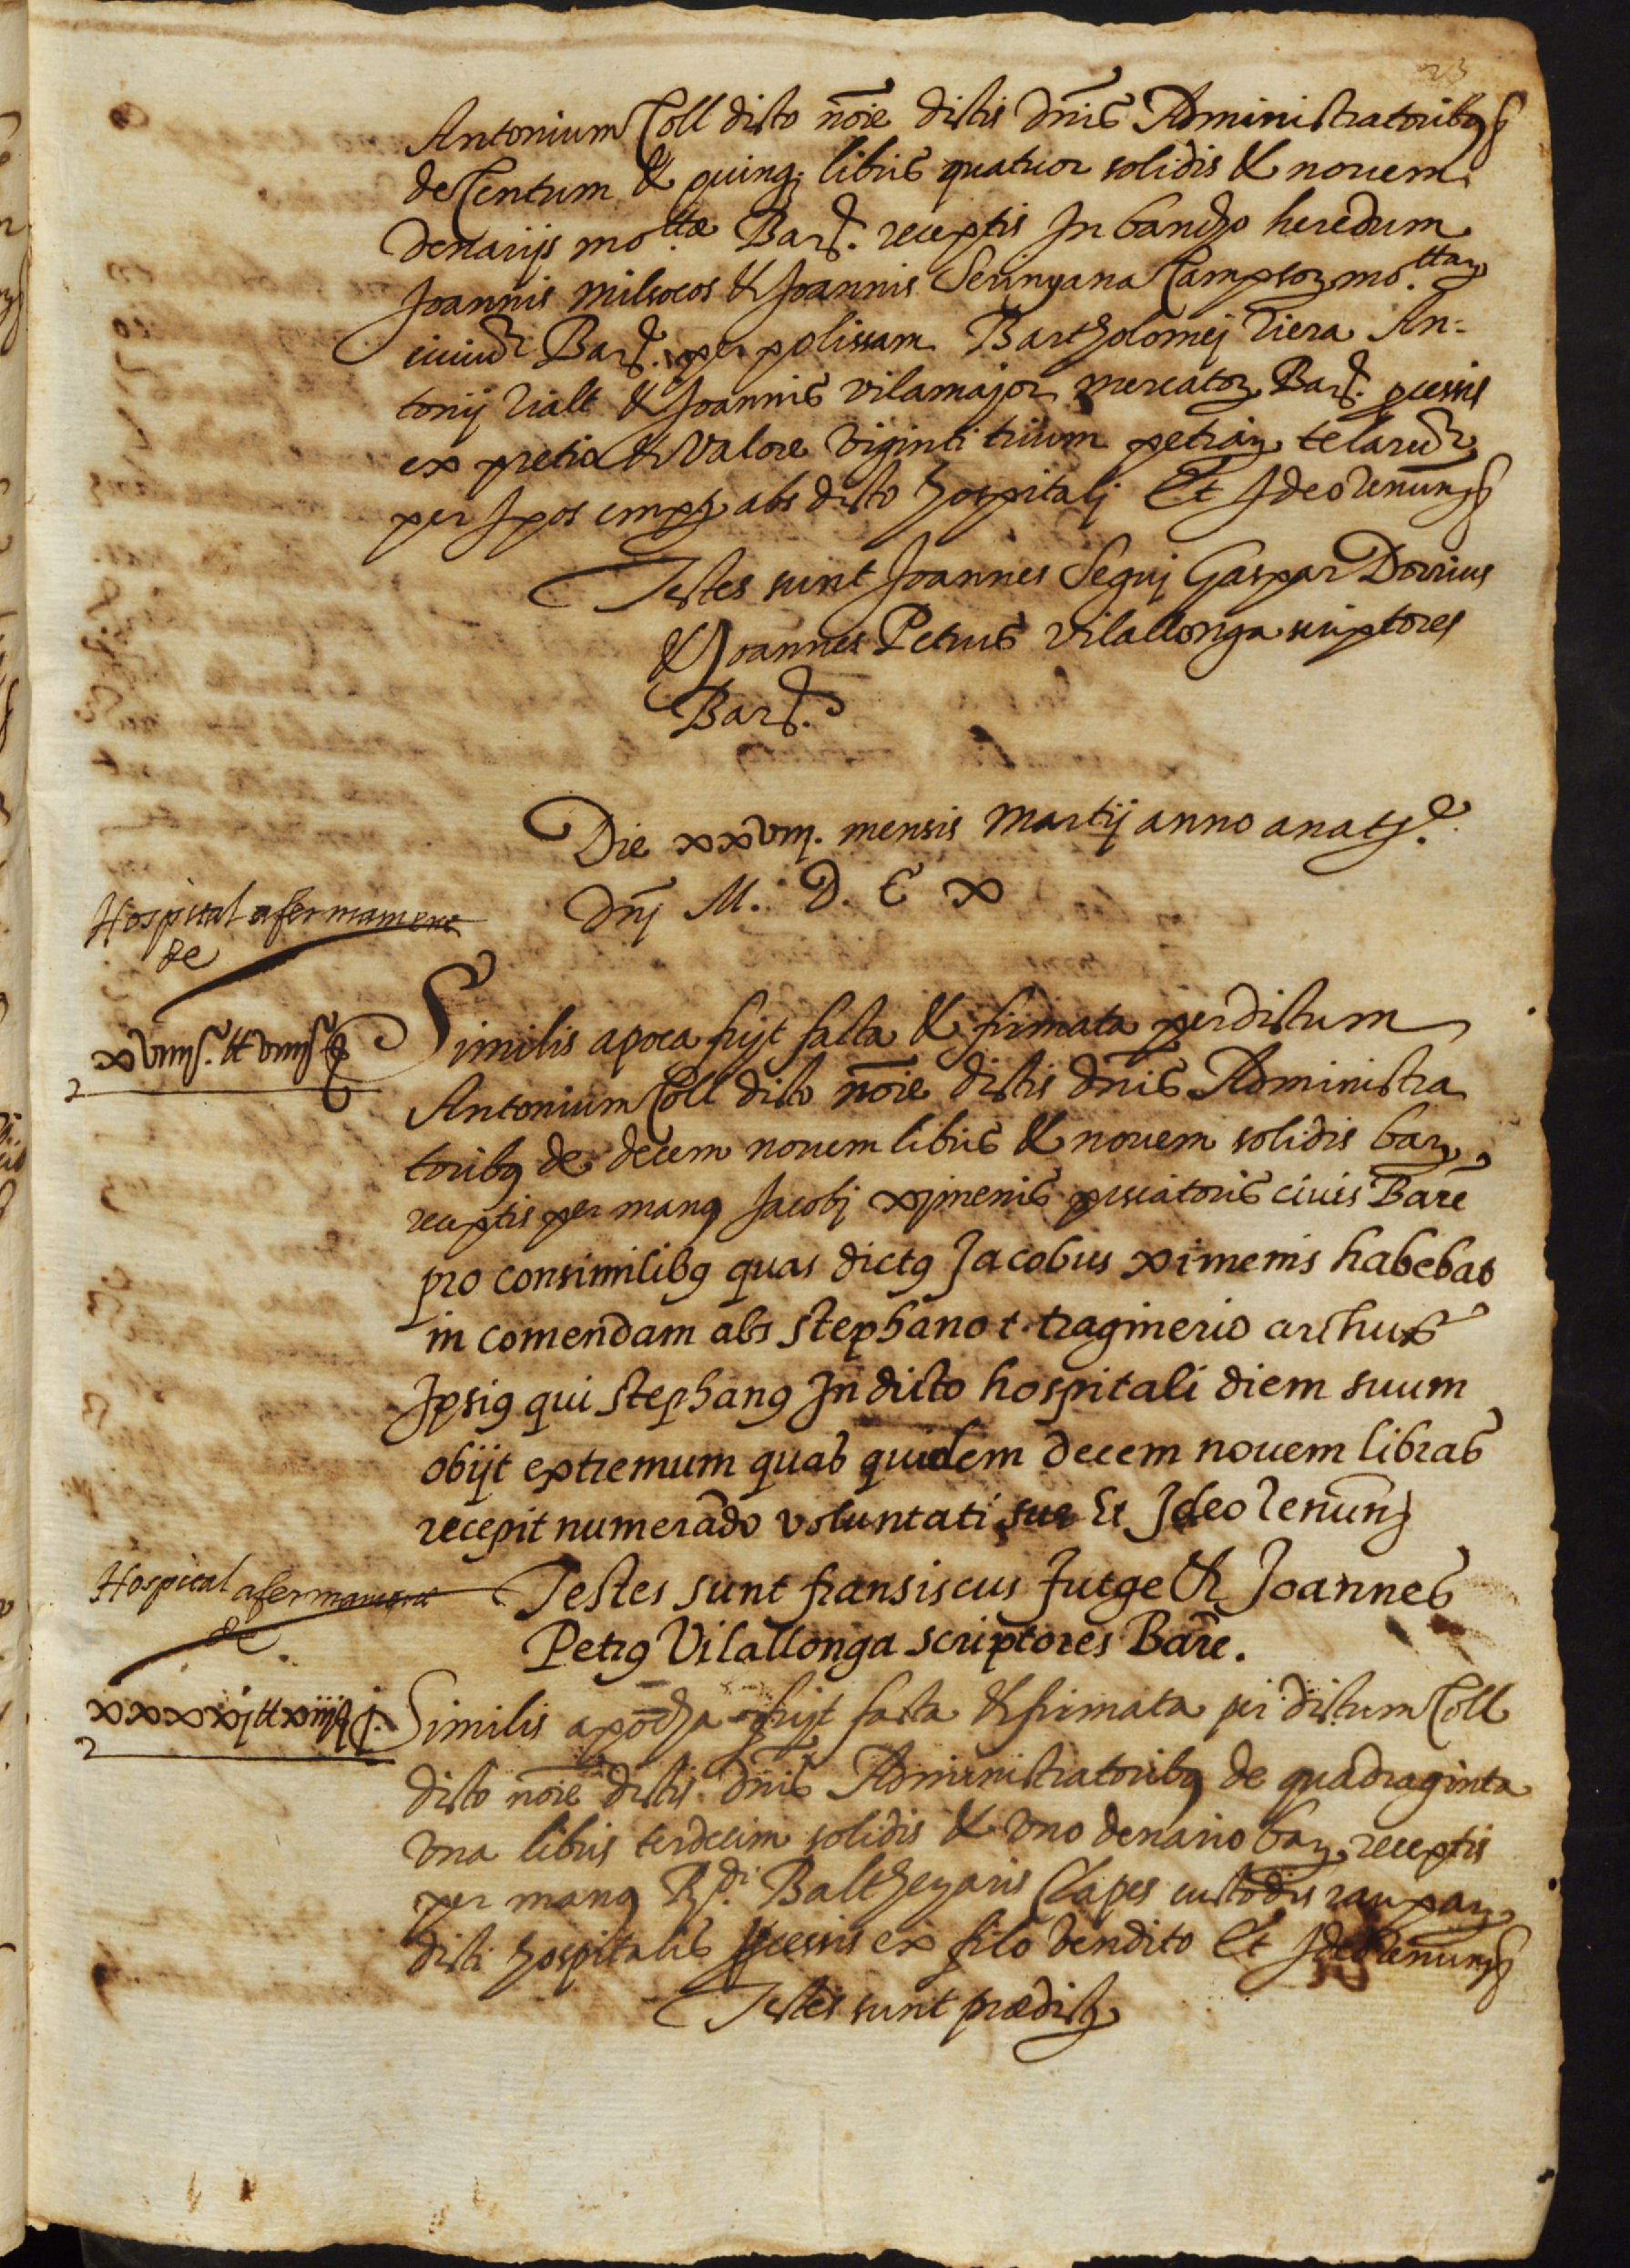 23
Antonium Coll dicto nõie dictis dnis Administratoribq
de Centum & quinq; libris quatuor solidis & novem
denarijs mo.ttæ Barſ. receptis In bancho heredum
Joannis milsocos & Joannis Serinyana Campsoz mo.ttaz
civiu Barſ. per polissam Bartholomej riera An-
tonij rialt & Joannis vilamajor mercatoz Barſ. pcessis
ex pretio & valore viginti trium petiaz telaru
per Ipos empt abs dicto hospitalj Et Ideo renunſ
Testes sunt Joannes Seguj Gaspar Dorrius
& Joannes Petrus vilallonga scriptores
Barſ.
Die xxviij. mensis martij anno a natj.e
dnj M. D. C x
Hospital afermament
de
xviiijſ. tt viiijſ
Similis apoca fujt facta & firmata per dictum
Antonium Coll dicto nõie dictis dnis Administra
toribq de decem novem libris & novem solidis barz
receptis per manq Jacobj ximenis piscatoris civis Bare
pro consimilibq quas dictq Jacobus ximenis habebat
in comendam abs stephano t. traginerio arthus
Ipsiq qui stephanq In dicto hospitali diem suum
obijt extremum quas quidem decem novem libras
recepit numerãdo voluntati sue Et Ideo renunſ
Testes sunt fransiscus Jutge & Joannes
Petrq Vilallonga scriptores Bare.
Hospital afermament
de
xxxxj tt xiijſ j.
Similis apocha fujt facta & firmata per dictum Coll
dicto nõie dictis dnis Administratoribq de quadraginta
una libris terdecim solidis & uno denario barz receptis
per manq Rdi. Balthezaris Clapes custodis raupaz
dicti hospitalis pcessis ex filo vendito Et Ideo renunſ
Testes sunt prædictj